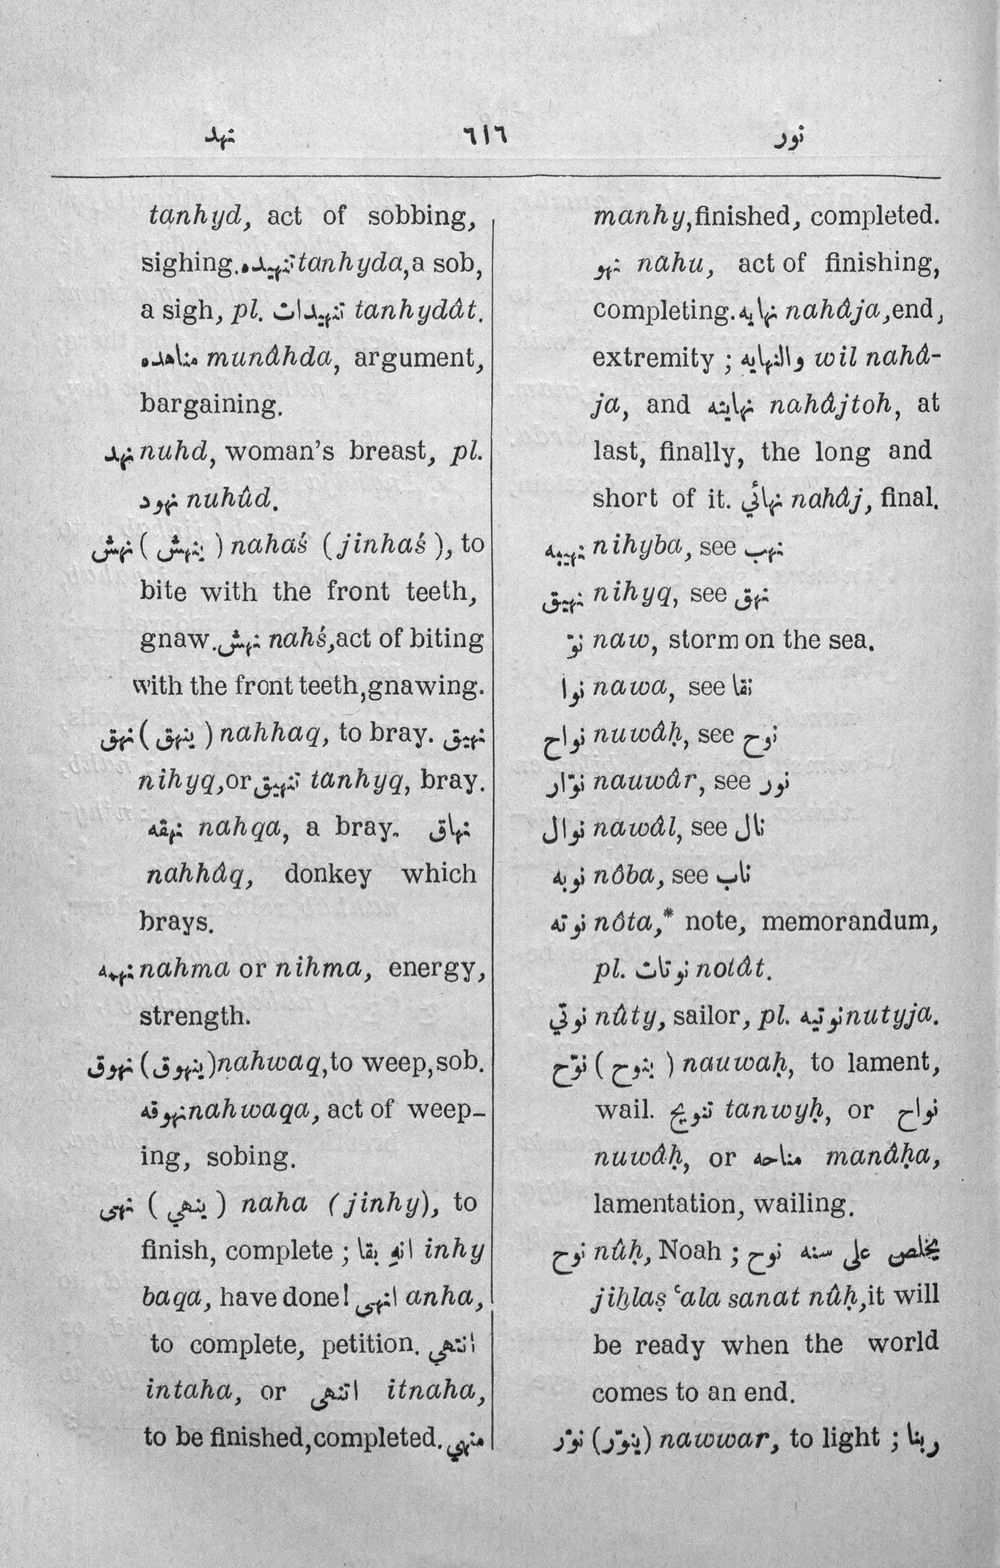 نهد ٦١٦ نور
tanhyd, act of sobbing,
sighing. تنهيده tanhyda, a sob,
a sigh, pl. تنهيدات tanhydât.
مناهده munâhda, argument,
bargaining.
نهد nuhd, woman's breast, pl.
نهود nuhûd.
نهش ( ينهش ) nahaś (jinhaś), to
bite with the front teeth,
gnaw. نهش nahś, act of biting
with the front teeth, gnawing.
نهق ( ينهق ) nahhaq, to bray. نهيق
nihyq, or تنهيق tanhyq, bray.
نهقه nahqa, a bray. نهاق
nahhâq, donkey which
brays.
نهمه nahma or nihma, energy,
strength.
نهوق (ينهوق) nahwaq, to weep, sob.
نهوقه nahwaqa, act of weep-
ing, sobing.
نهى ( ينهي ) naha (jinhy), to
finish, complete ; انهِ بقا inhy
baqa, have done! انهى anha,
to complete, petition. انتهي
intaha, or اتنهى itnaha,
to be finished, completed. منهي
manhy, finished, completed.
نهو nahu, act of finishing,
completing. نهايه nahâja, end,
extremity ; والنهايه wil nahâ-
ja, and نهايته nahâjtoh, at
last, finally, the long and
short of it. نهائي nahâj, final.
نهيبه nihyba, see نهب
نهيق nihyq, see نهق
نوّ naw, storm on the sea.
نوا nawa, see نقا
نواح nuwâḥ, see نوح
نوّار nauwâr, see نور
نوال nawâl, see نال
نوبه nôba, see ناب
نوته nôta,* note, memorandum,
pl. نوتات notât.
نوتي nûty, sailor, pl. نوتيه nutyja.
نوّح ( ينوح ) nauwaḥ, to lament,
wail. تنويح tanwyḥ, or نواح
nuwâḥ, or مناحه manâḥa,
lamentation, wailing.
نوح nûḥ, Noah ; يخلص على سنه نوح
jiḫlaṣ ʿala sanat nûḥ, it will
be ready when the world
comes to an end.
نوّر (ينوّر) nawwar, to light ; ربنا